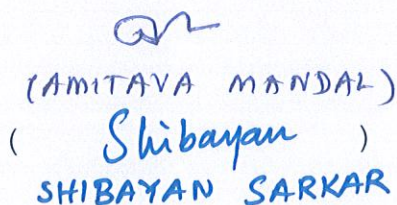 (AMITAVA MANDAL)
( Shibayan )
SHIBAYAN SARKAR